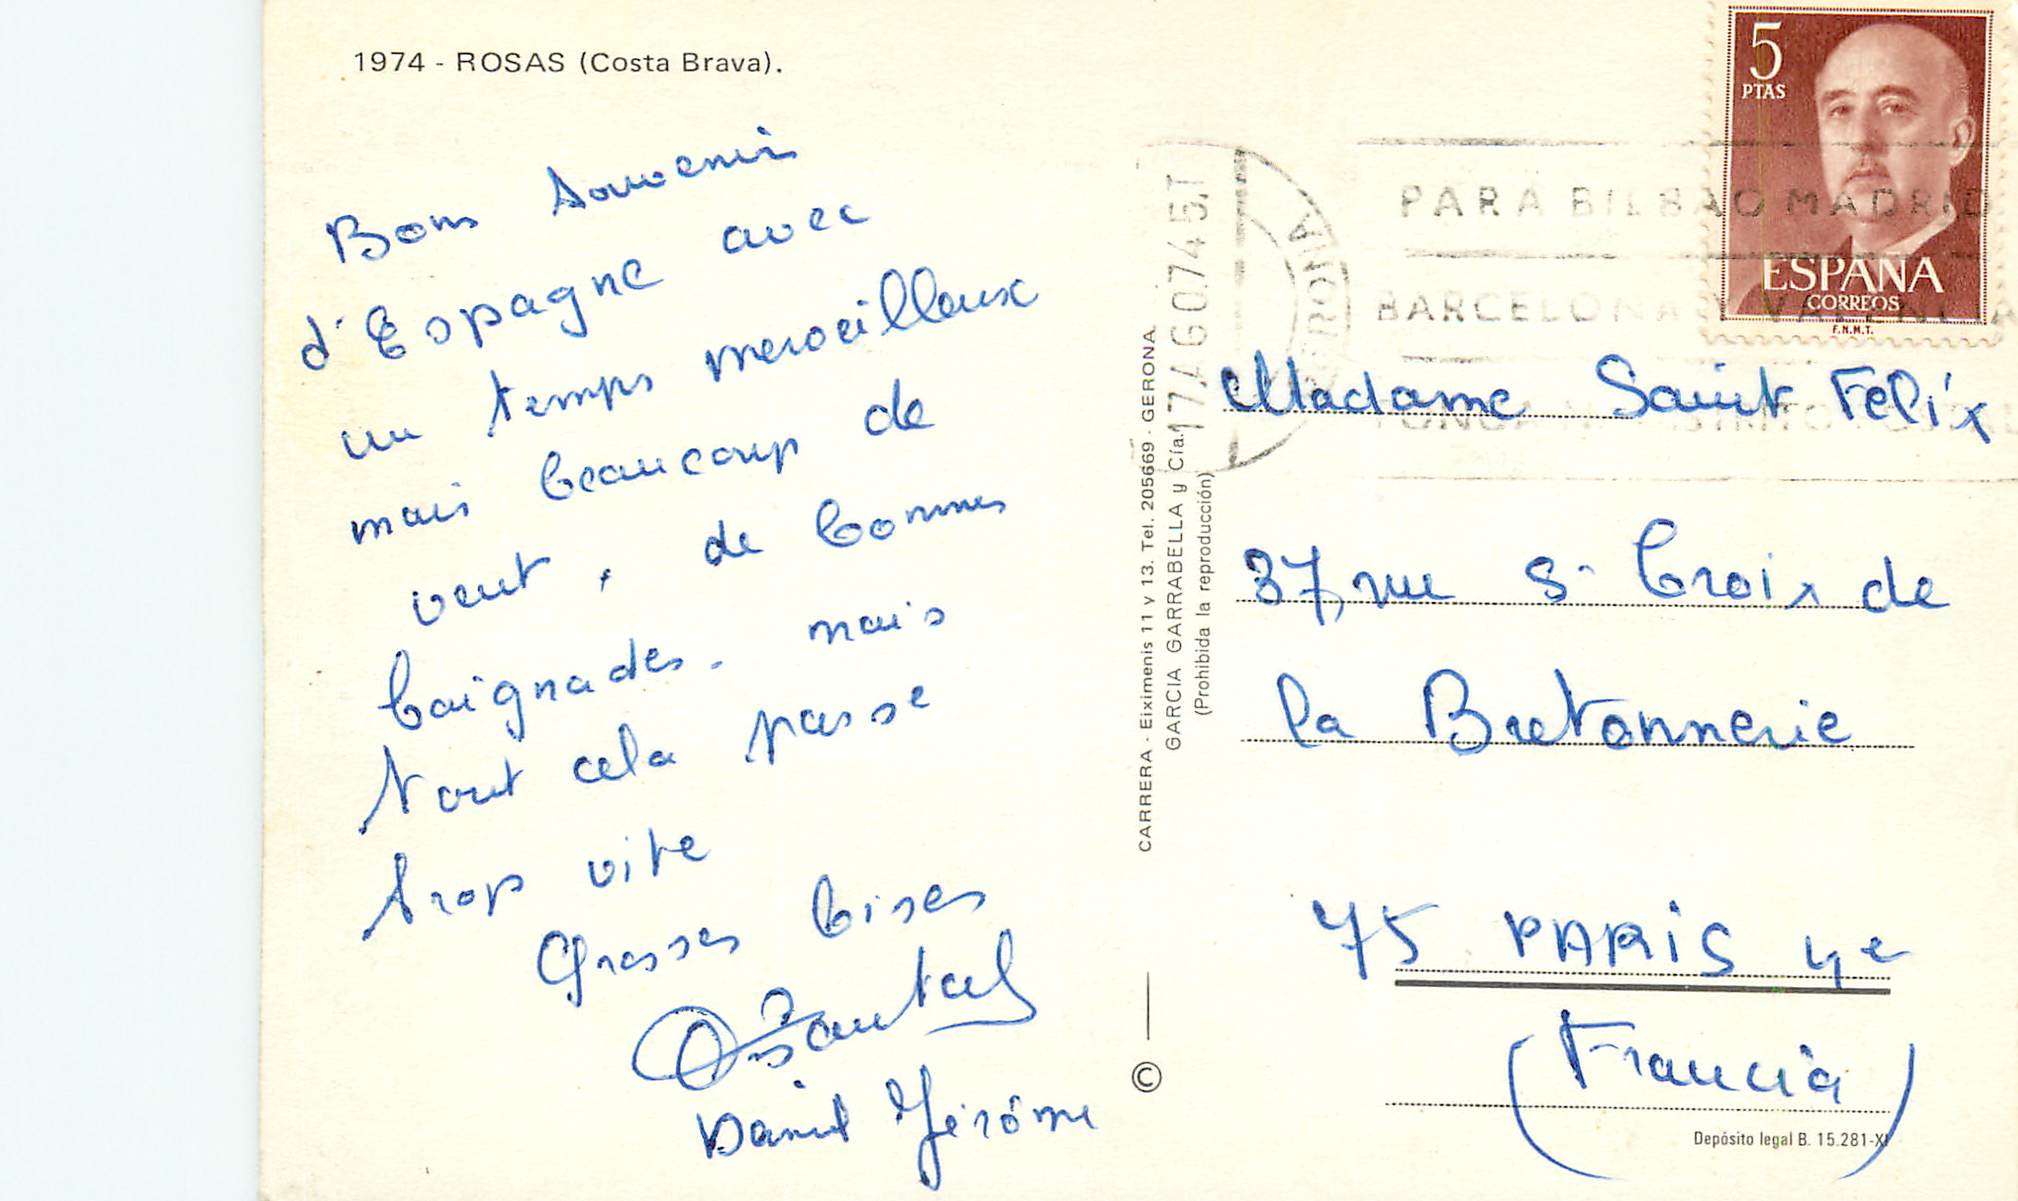 1974 - ROSAS (Costa Brava).
Bons Souvenirs
d'Espagne avec
un temps merveilleux
mais beaucoup de
vent, de bonnes
baignades. mais
tout cela passe
trop vite
Grosses bises
Chantal
Daniel Jérôme
CARRERA - Eiximenis 11 y 13. Tel. 205669 - GERONA
GARCIA GARRABELLA y Cía.
(Prohibida la reproducción)
©
5
PTAS
ESPAÑA
CORREOS
F.N.M.T.
17AGO745T
GERONA
PARA BILBAO MADRID
BARCELONA Y VALENCIA
PONGA
Madame Saint Felix
37, rue Se Croix de
la Bretonnerie
75 PARiS 4e
(Francia)
Depósito legal B. 15.281-XI